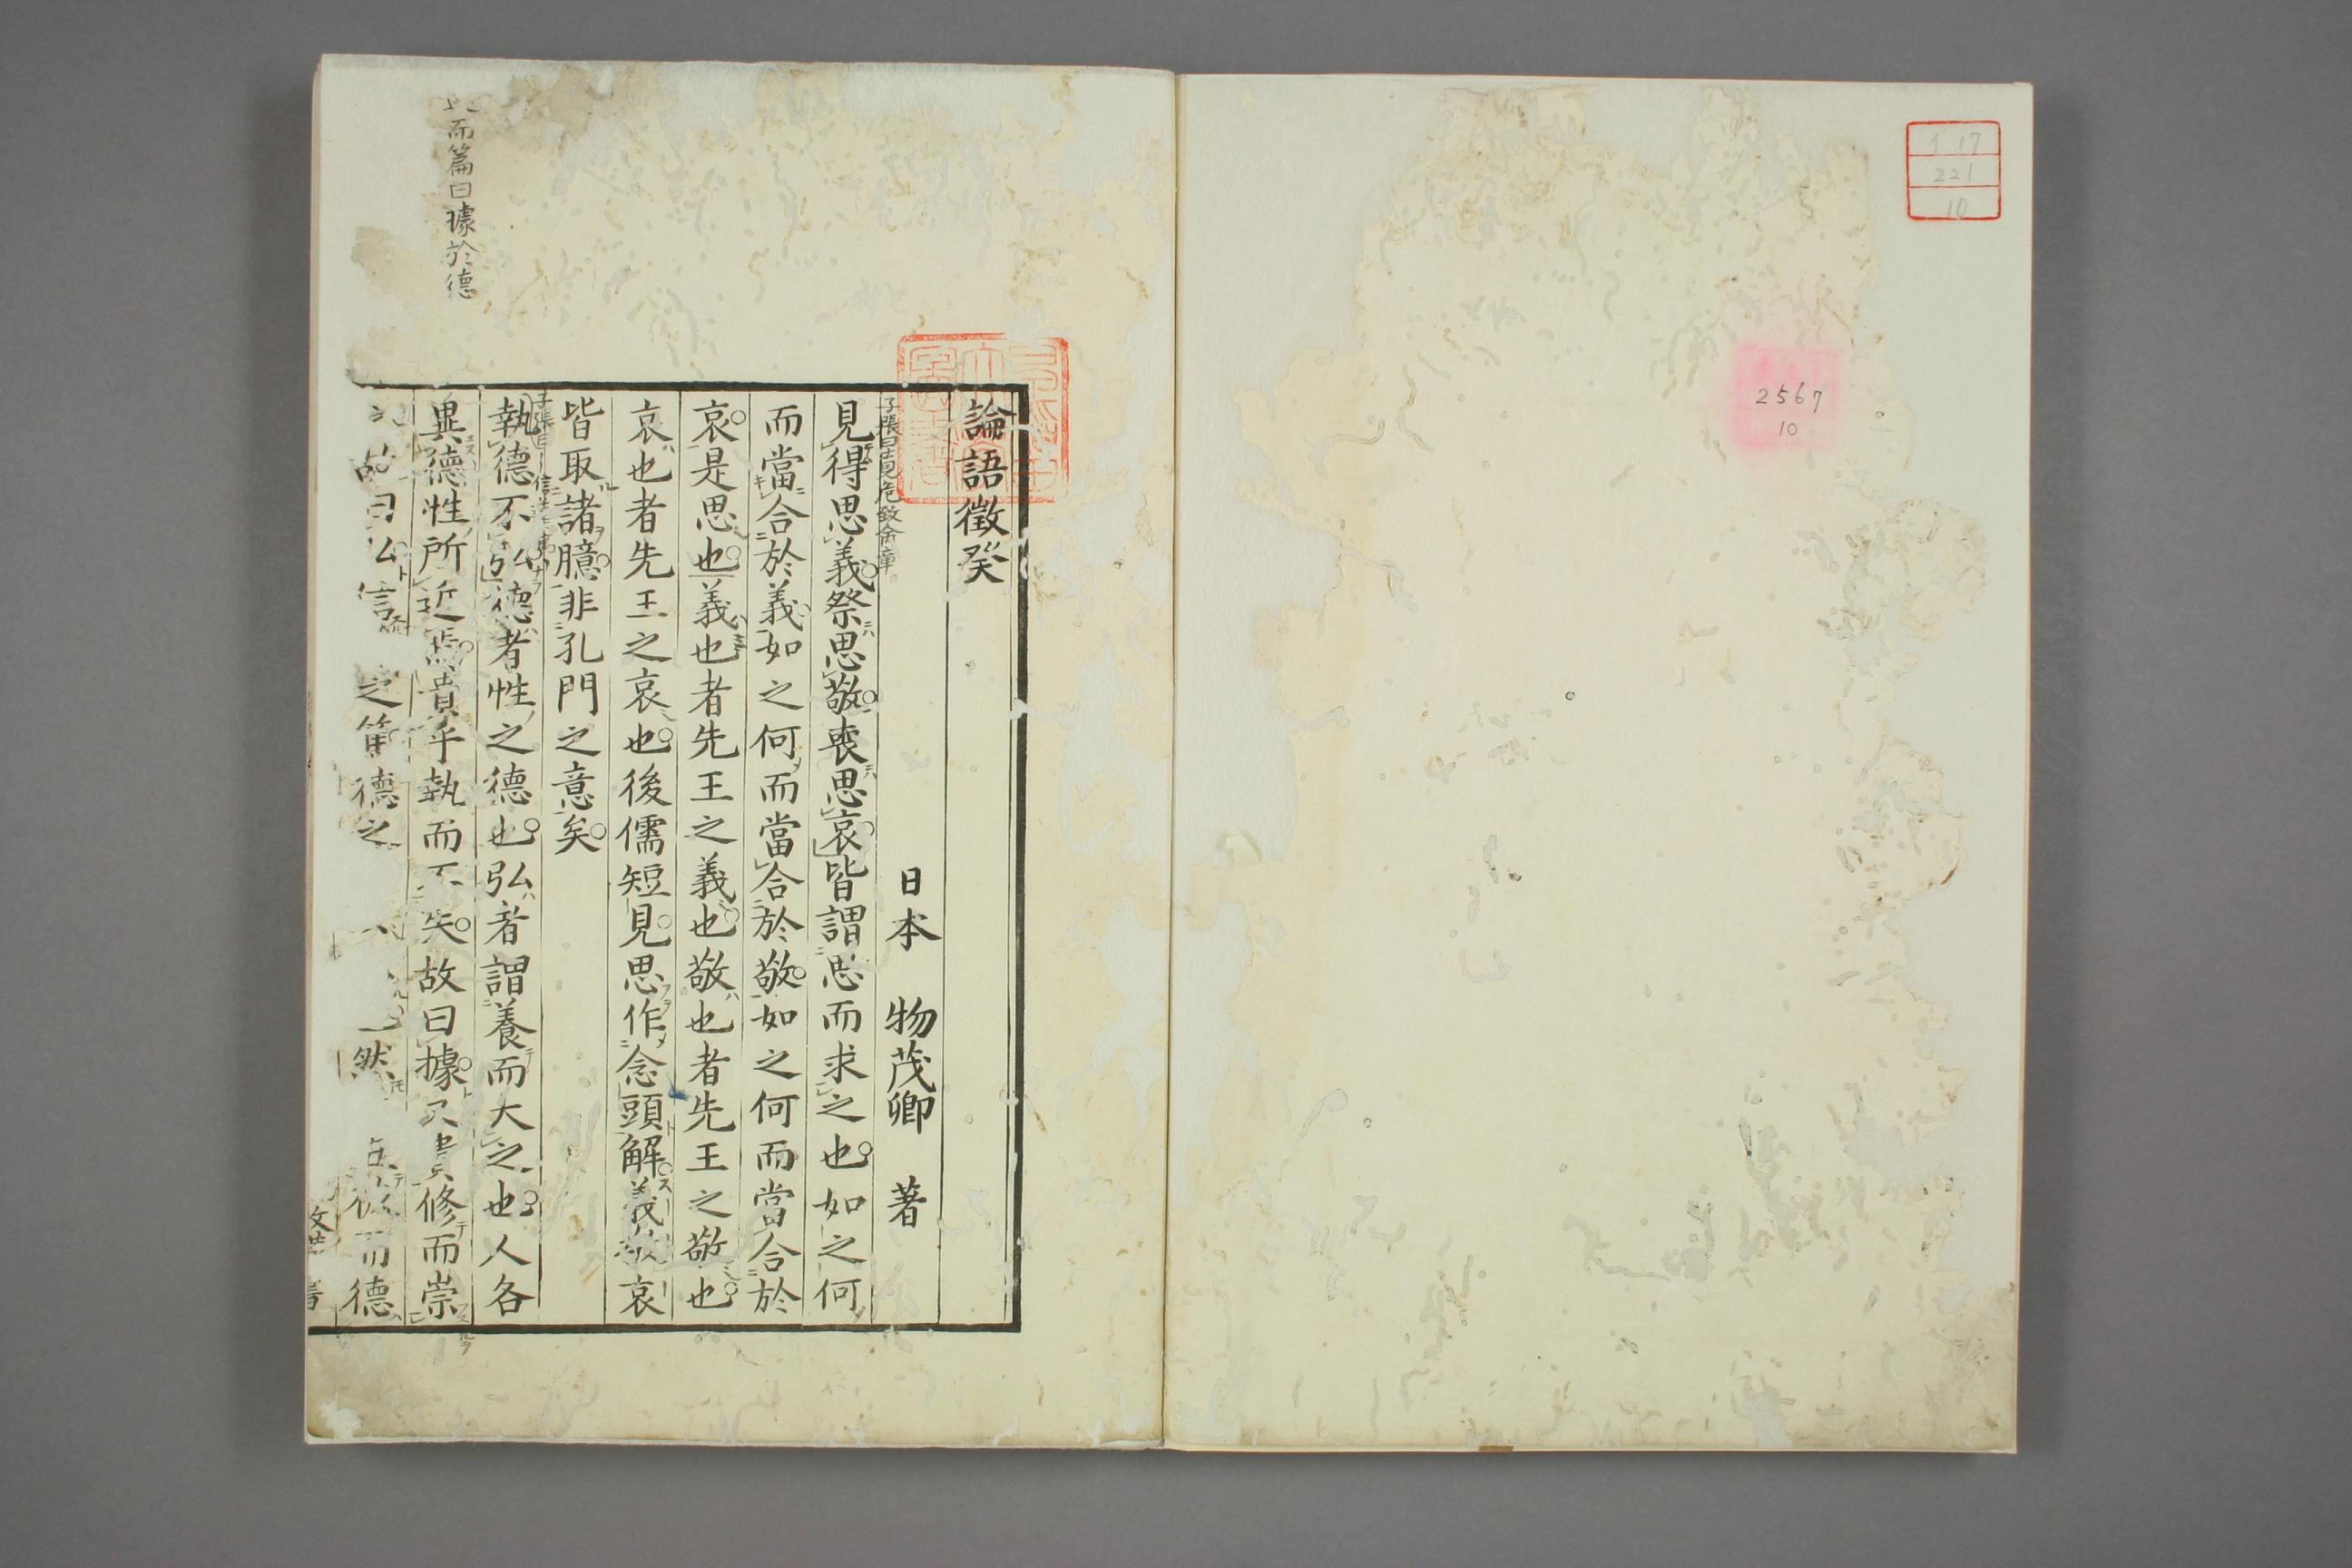 17
221
10
2567
10
論語徵癸
日本 物茂卿 著
子張曰士見危致命章
見得思義祭思敬喪思哀皆謂思而求之也如之何
而當合於義如之何而當合於敬如之何而當合於
哀是思也義也者先王之義也敬也者先王之敬也
哀也者先王之哀也後儒短見思作念頭解義敬哀
皆取諸臆非孔門之意矣
執德不弘德者性之德也弘者謂養而大之也人各
異德性所近焉貴乎執而不失故曰據又貴修而崇
故曰弘信之篤德之然而德
而篇曰據於德